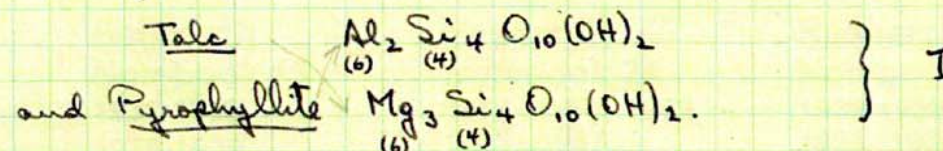 Talc Al₂ Si₄ O₁₀(OH)₂ } I
(6) (4)
and Pyrophyllite Mg₃ Si₄ O₁₀(OH)₂.
(6) (4)